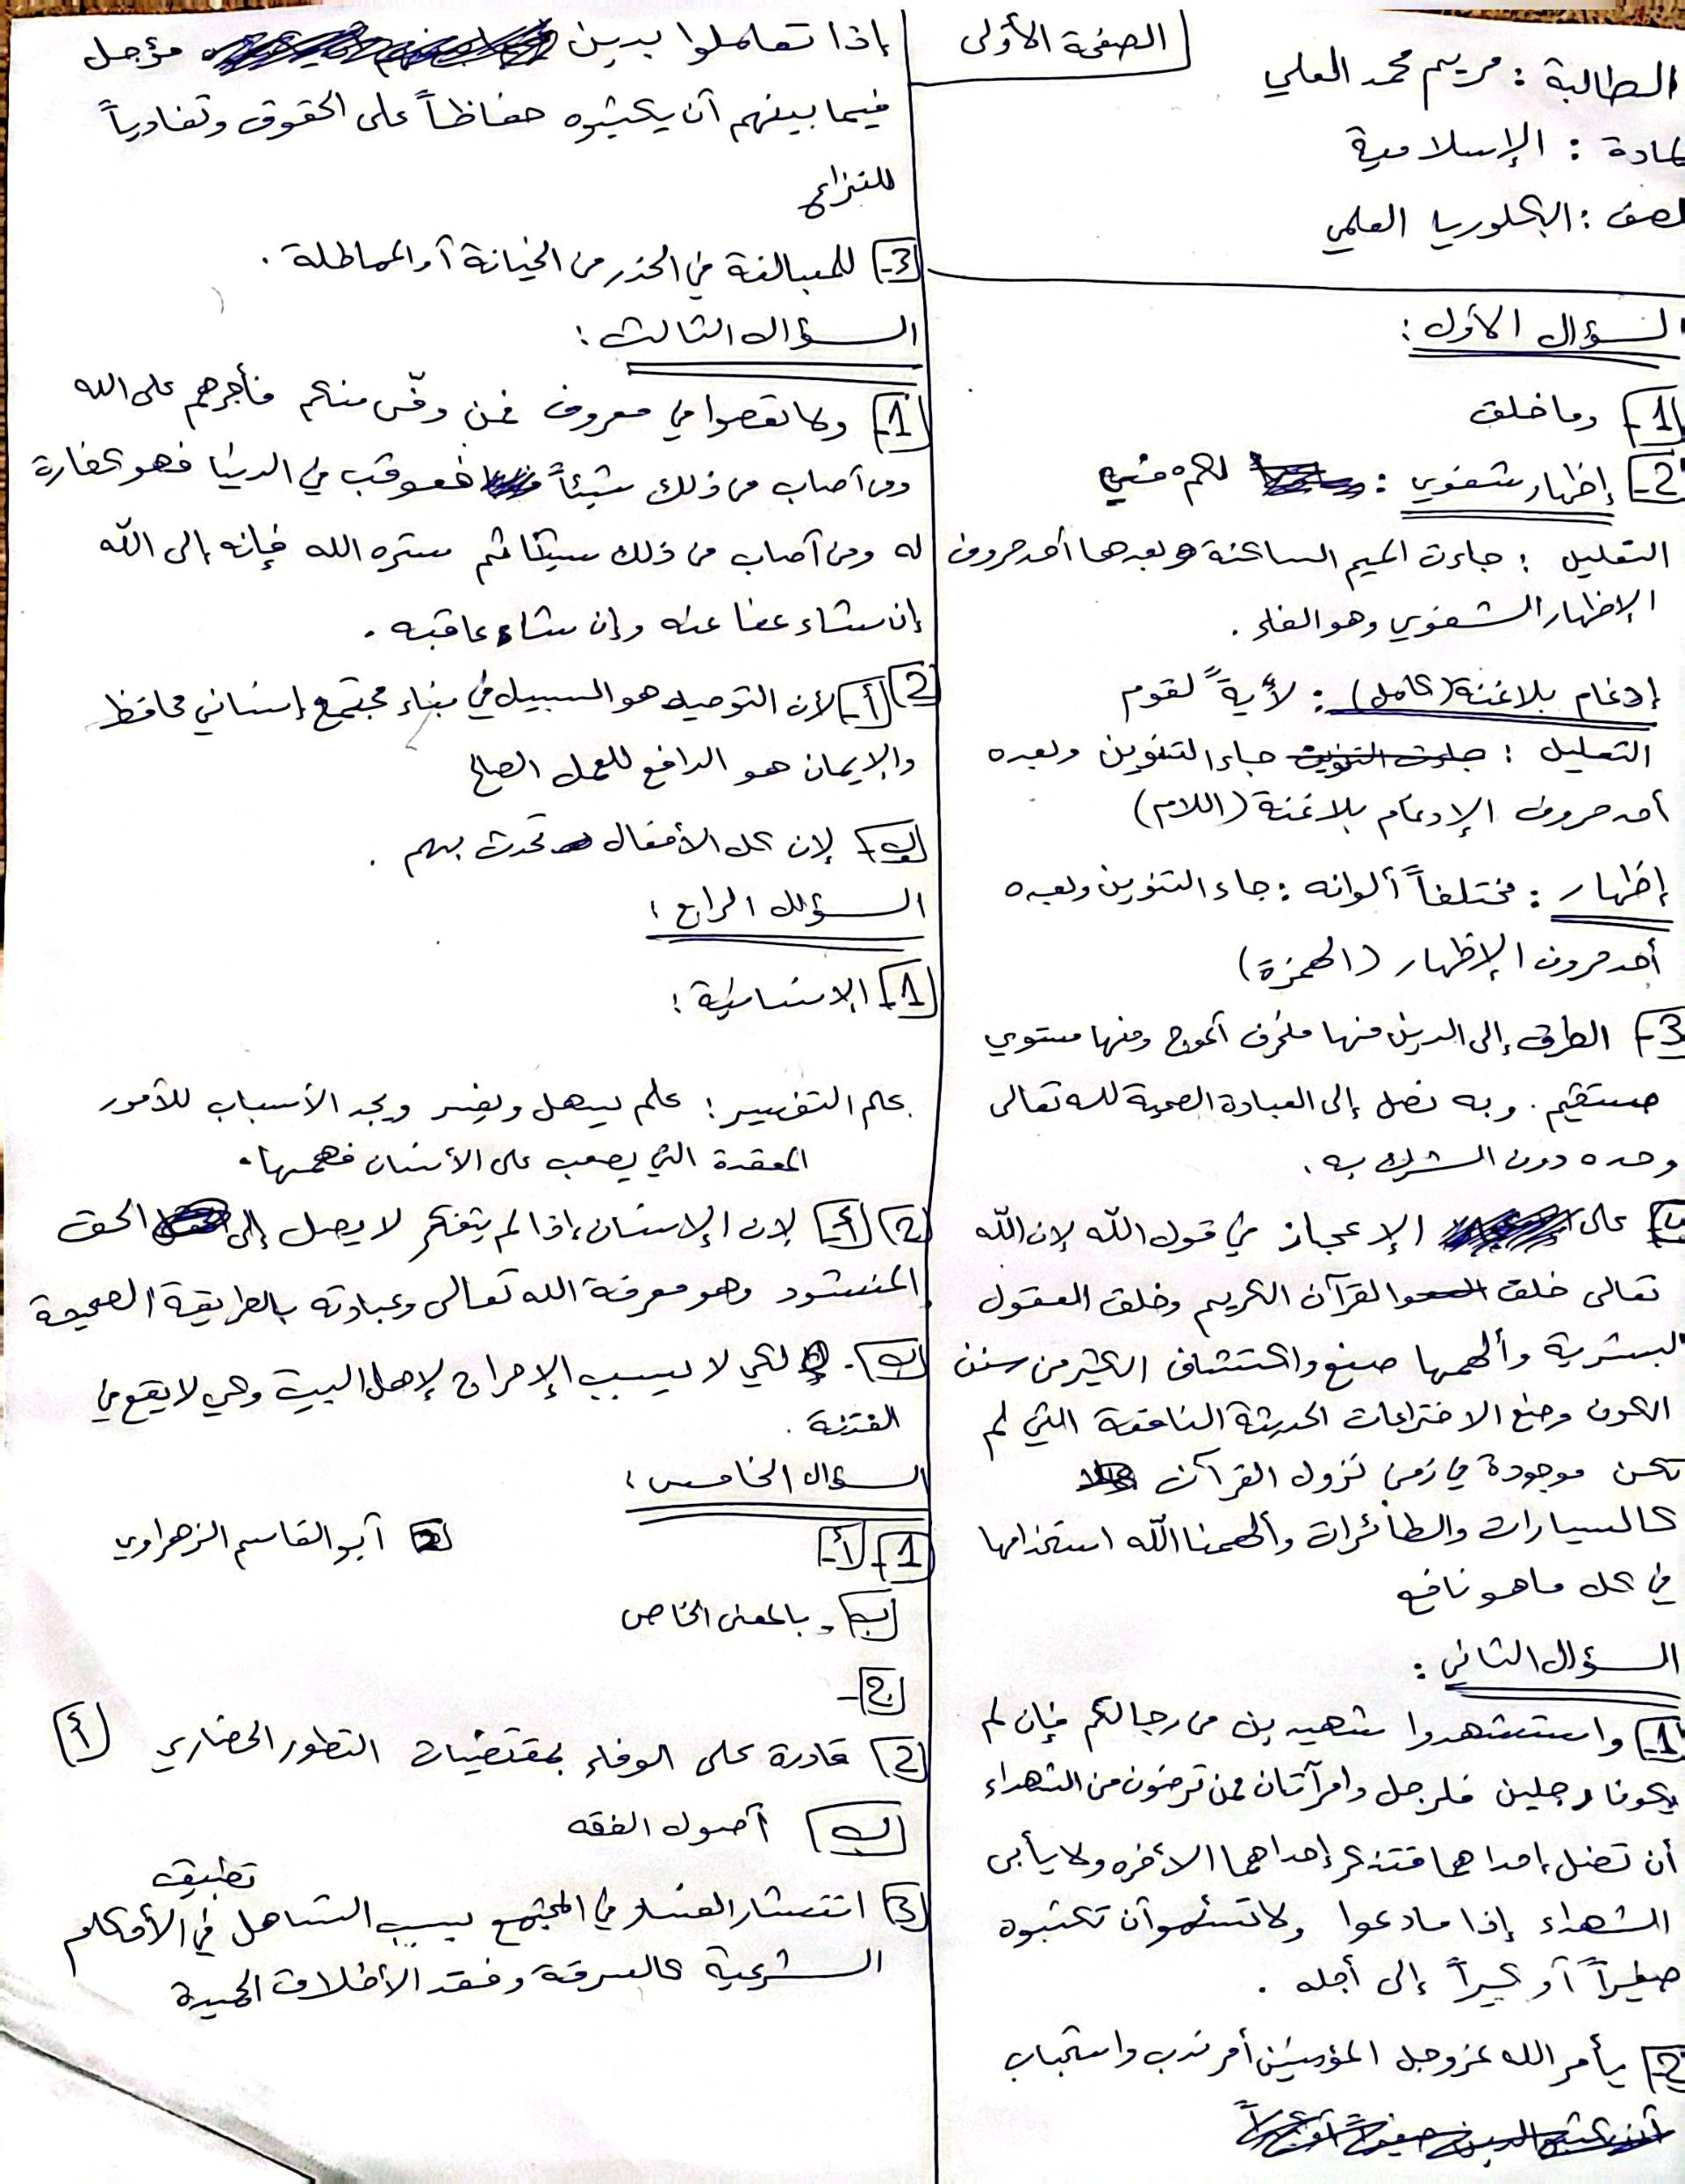 الصفحة الأولى
الطالبة : مريم محمد العلي
لمادة : الإسلامية
لصف : البكلوريا العلمي
لسؤال الأول :
1- وما خلق
2- إظهار شفوي : لكم فيه
التعليل : جاءت الميم الساكنة وبعدها أحد حروف
الإظهار الشفوي وهو الفاء .
إدغام بلاغنة (كامل) : لأيةً لقوم
التعليل : جاء التنوين وبعده
أحد حروف الإدغام بلاغنة (اللام)
إظهار : مختلفاً ألوانه : جاء التنوين وبعده
أحد حروف الإظهار (الهمزة)
3- الطرق إلى الدين منها منحرف أعوج ومنها مستوي
مستقيم . وبه نصل إلى العبادة الصحيحة لله تعالى
وحده دون الشرك به .
على الإعجاز في قول الله لإن الله
تعالى خلق القرآن الكريم وخلق العقول
لبشرية وألهمها صنع واكتشاف الكثير من سنن
الكون وصنع الاختراعات الحديثة النافعة التي لم
تكن موجودة في زمن نزول القرآن
كالسيارات والطائرات وألهمنا الله استخدامها
في كل ما هو نافع
السؤال الثاني :
1- واستشهدوا شهيدين من رجالكم فإن لم
يكونا رجلين فلرجل وامرآتان ممن ترضون من الشهداء
أن تضل إحداهما فتذكر إحداهما الأخره ولا يأبى
الشهداء إذا ما دعوا ولا تسئموا أن تكتبوه
صغيراً أو كبيراً إلى أجله .
2- يأمر الله عز وجل المؤمنين أمر ندب واستحباب
إذا تعاملوا بدين مؤجل
فيما بينهم أن يكتبوه حفاظاً على الحقوق وتفادياً
للنزاع
3- للمبالغة في الحذر من الخيانة أو المماطلة .
السؤال الثالث :
1- ولا تعصوا في معروف فمن وفّى منكم فأجرهم على الله
ومن أصاب من ذلك شيئاً فعوقب في الدنيا فهو كفارة
له ومن أصاب من ذلك شيئا ثم ستره الله فإنه إلى الله
إن شاء عفا عنه وإن شاء عاقبه .
2 أ- لأن التوحيد هو السبيل في بناء مجتمع إنساني محافظ
والإيمان هو الدافع للعمل الصالح
ب- لإن كل الأفعال تحدث بهم .
السؤال الرابع :
1- الإنسانية :
علم التفسير : علم يسهل ويفسر ويجد الأسباب للأمور
المعقدة التي يصعب على الأنسان فهمها .
2 أ- لإن الإنسان إذا لم يتفكر لا يصل إلى الحق
المنشود وهو معرفة الله تعالى وعبادته بالطريقة الصحيحة
ب- لكي لا يسبب الإحراج لإهل البيت وكي لا يقع في
الفتنة .
السؤال الخامس :
1- أ- أبو القاسم الزهراوي
ب- بالمعنى الخاص
2-
2 قادرة على الوفاء بمقتضيات التطور الحضاري أ
ب أصول الفقه
3 انتشار الفساد في المجتمع بسبب التساهل في تطبيق الأحكام
الشرعية كالسرقة وفقد الأخلاق الحميدة